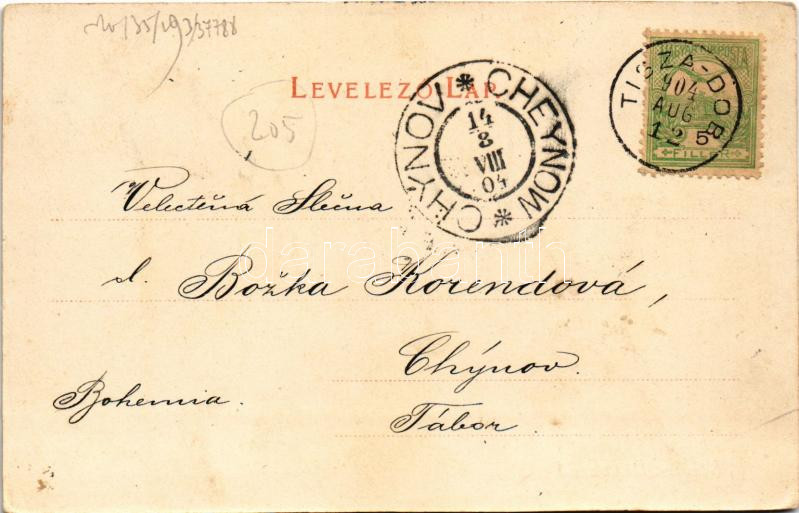 LEVELEZŐ LAP.
MAGYAR KIR. POSTA
TISZA-DOB
904
AUG
12
5
FILLÉR
CHEYNOW * CHÝNOV *
14
8
VIII
04
205
Velectěná Slečna
sl. Božka Korendová,
Chýnov.
Bohemia.
Tábor.
darabanth